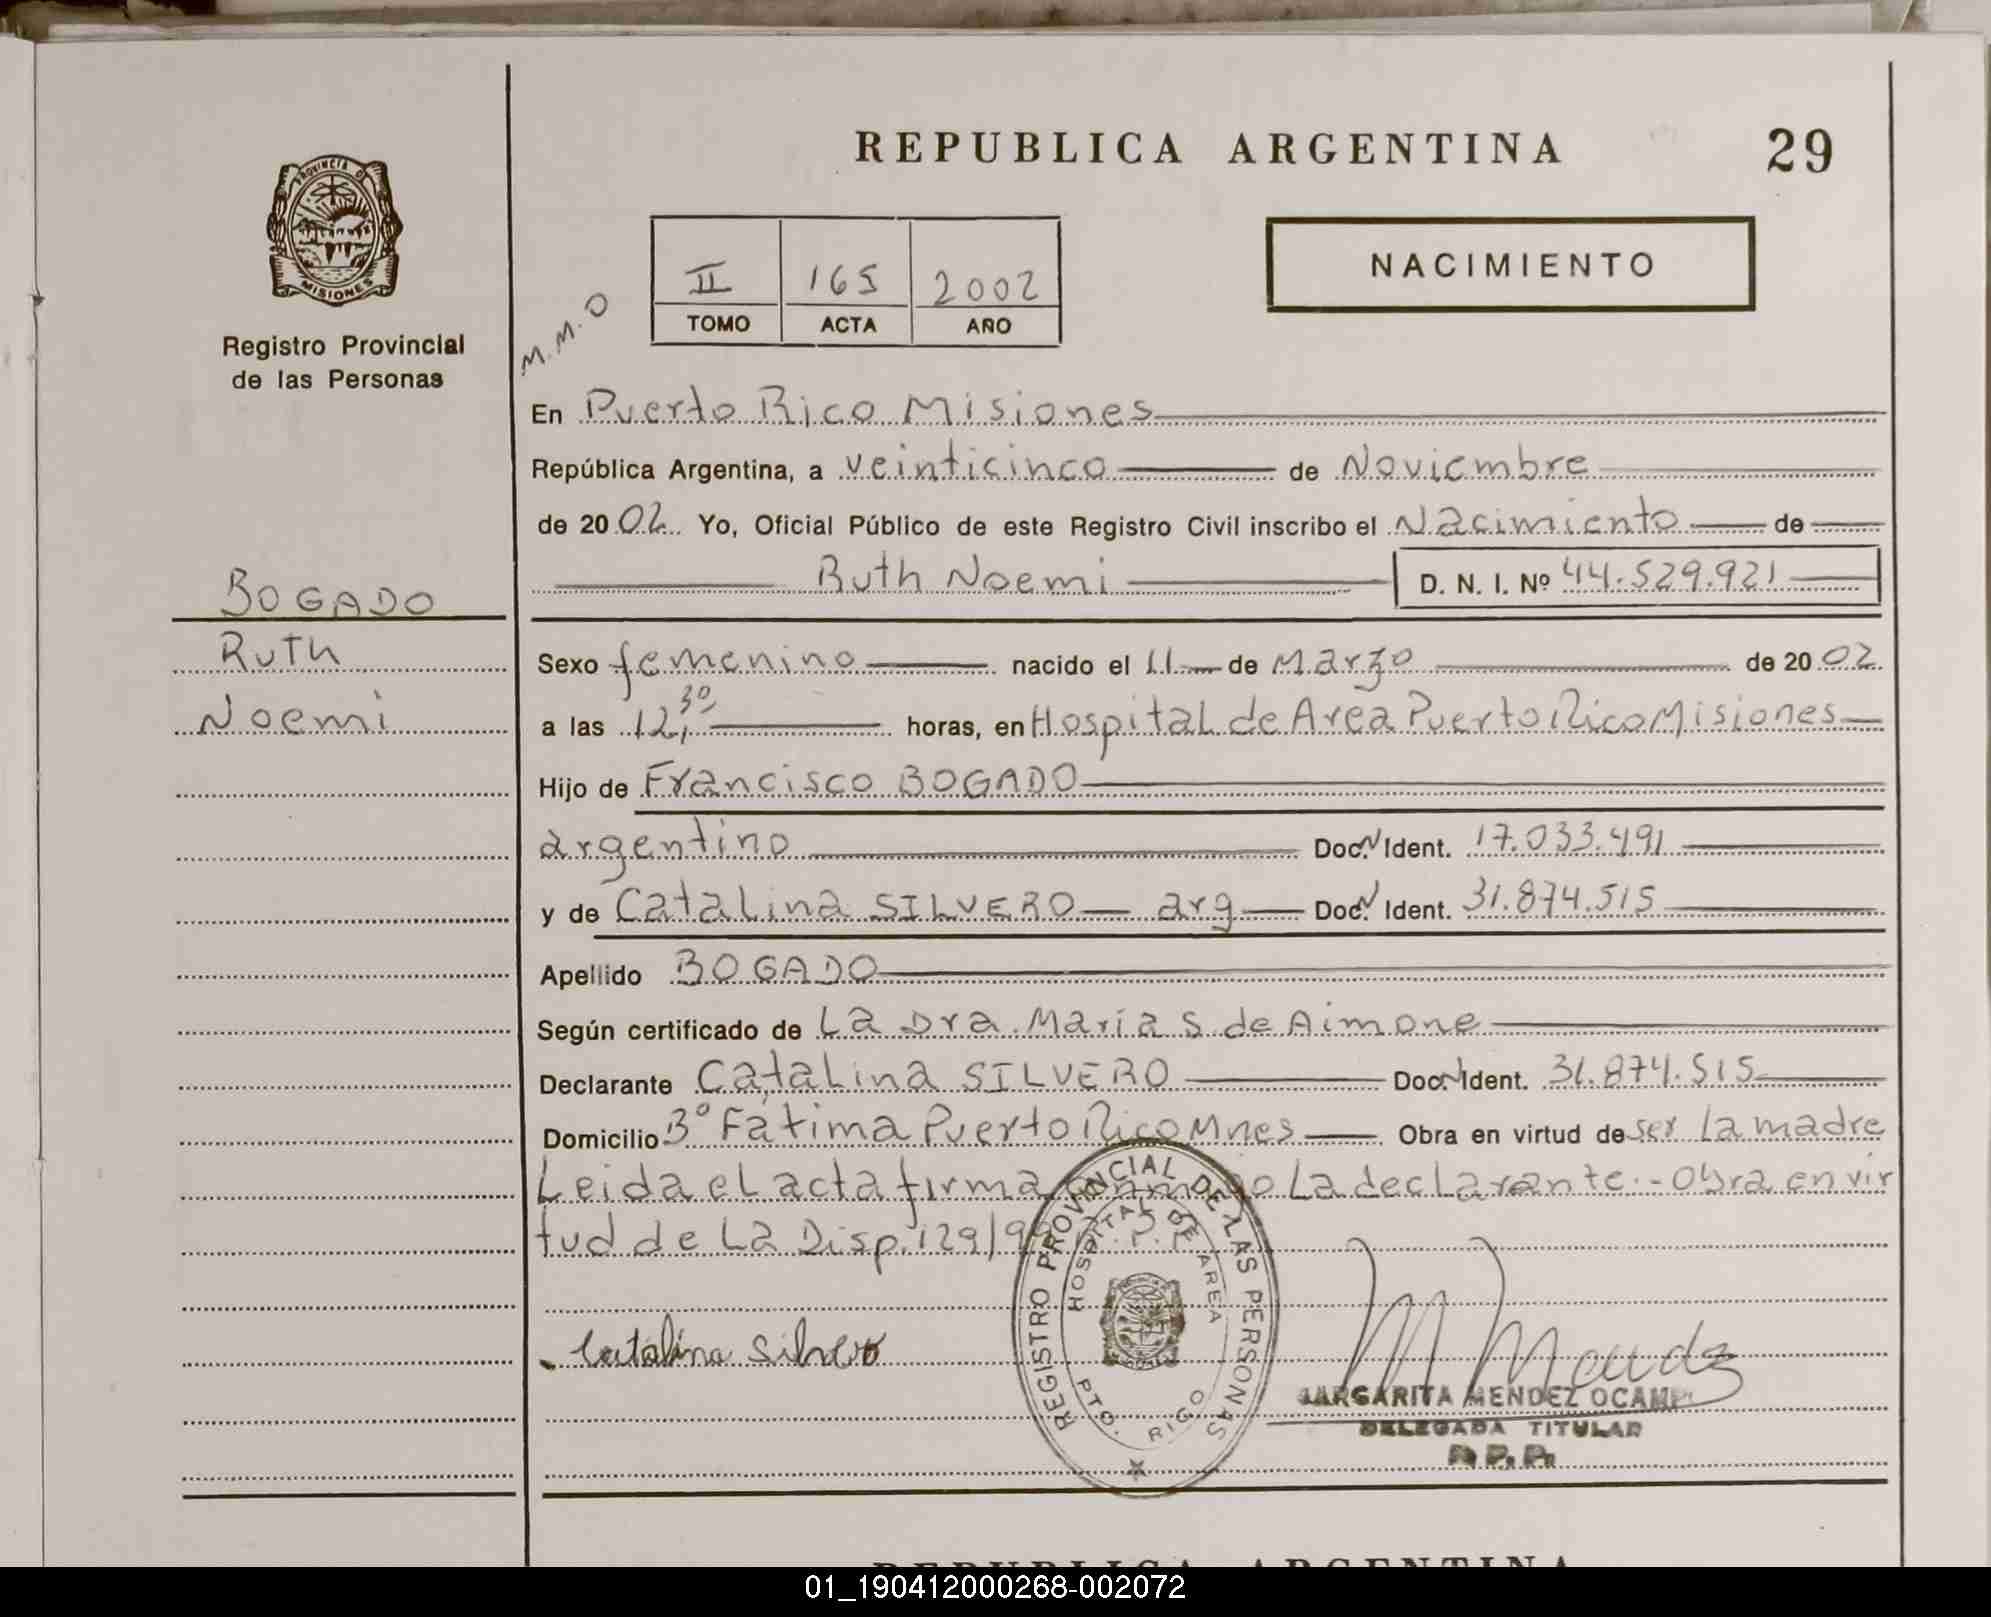 REPUBLICA ARGENTINA
29
PROVINCIA D
MISIONES
Registro Provincial
de las Personas
II 165 2002
TOMO ACTA AÑO
NACIMIENTO
M.M.O
En Puerto Rico Misiones
República Argentina, a veinticinco de Noviembre
de 2002 Yo, Oficial Público de este Registro Civil inscribo el Nacimiento de
Ruth Noemi D. N. I. Nº 44.529.921
BOGADO
Ruth
Noemi
Sexo femenino nacido el 11 de Marzo de 2002
a las 12,30 horas, en Hospital de Area Puerto Rico Misiones
Hijo de Francisco BOGADO
argentino Doc. N Ident. 17.033.491
y de Catalina SILVERO arg Doc. N Ident. 31.874.515
Apellido BOGADO
Según certificado de La Dra. Maria S. de Aimone
Declarante Catalina SILVERO Doc. N Ident. 31.874.515
Domicilio Bº Fátima Puerto Rico Mnes Obra en virtud de ser La madre
Leida el acta firma conmigo La declarante.- Obra en vir
tud de La Disp. 129/
REGISTRO PROVINCIAL DE LAS PERSONAS
HOSPITAL DE AREA
PTO. RICO
Catalina Silvero
M Mendez
MARGARITA MENDEZ OCAMP
DELEGADA TITULAR
R.P.P.
REPUBLICA ARGENTINA
01_190412000268-002072